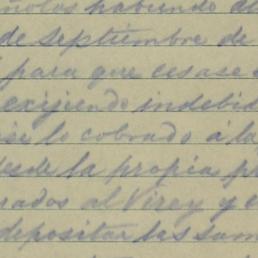 ñolos habiendo d
de septiembre de
para que cesase
exijiendo indebid
se lo cobrado á la
desde la propia p
rados al Virey y e
depositar las sum